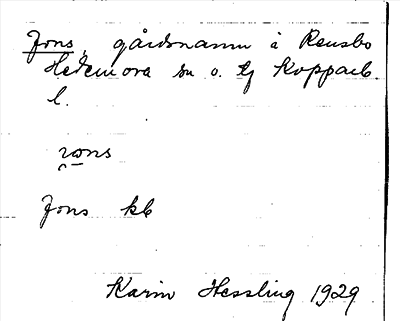 Jons, gårdsnamn å Rensbo
Hedemora sn o. tg Kopparb.
l.
Jons kb
Karin Hessling 1929